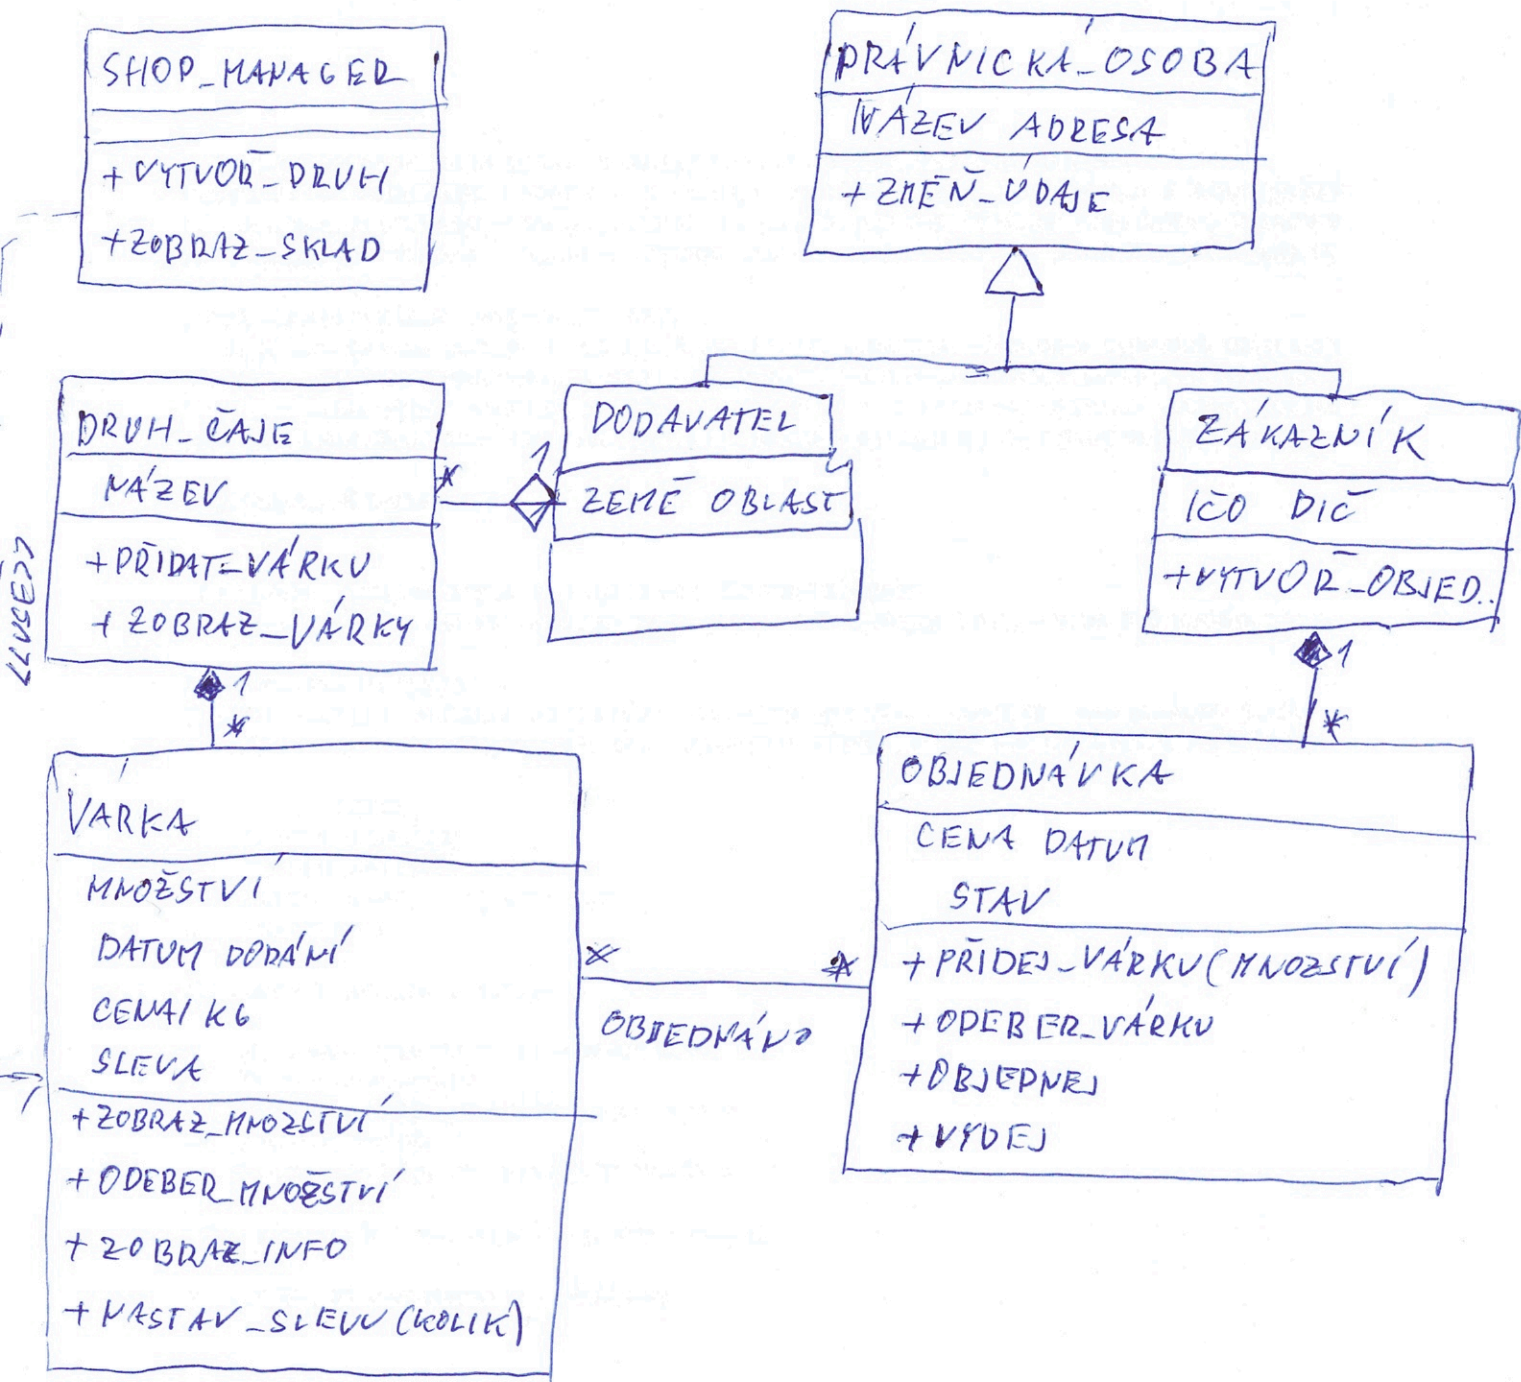 SHOP_MANAGER
+VYTVOŘ_DRUH
+ZOBRAZ_SKLAD
PRÁVNICKÁ_OSOBA
NÁZEV ADRESA
+ZMĚŇ_ÚDAJE
DRUH_ČAJE
NÁZEV
+PŘIDAT_VÁRKU
+ZOBRAZ_VÁRKY
*
1
DODAVATEL
ZEMĚ OBLAST
ZÁKAZNÍK
IČO DIČ
+VYTVOŘ_OBJED..
<<CESS>>
1
*
1
*
VÁRKA
MNOŽSTVÍ
DATUM DODÁNÍ
CENA/KG
SLEVA
+ZOBRAZ_MNOZSTVÍ
+ODEBER_MNOŽSTVÍ
+ZOBRAZ_INFO
+NASTAV_SLEVU(KOLIK)
*
*
OBJEDNÁNO
OBJEDNÁVKA
CENA DATUM
STAV
+PŘIDEJ_VÁRKU(MNOZSTVÍ)
+ODEBER_VÁRKU
+OBJEDNEJ
+VYDEJ